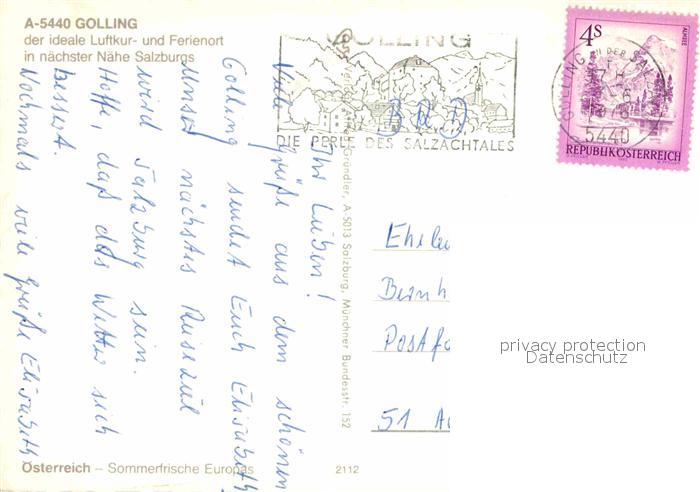 A-5440 GOLLING
der ideale Luftkur- und Ferienort
in nächster Nähe Salzburgs
GOLLING
DIE PERLE DES SALZACHTALES
GOLLING AN DER SALZACH
5440
4S
REPUBLIK ÖSTERREICH
BRD
Ihr Lieben!
Viele Grüße aus dem schönen
Golling sendet Euch Elisabeth
Unser nächstes Reiseziel
wird Salzburg sein.
Hoffe, daß das Wetter sich
bessert.
Nochmals viele Grüße Elisabeth
Gründler, A-5013 Salzburg, Münchner Bundesstr. 152
Ehele
Bernh
Postfa
51 A
privacy protection
Datenschutz
Österreich – Sommerfrische Europas
2112